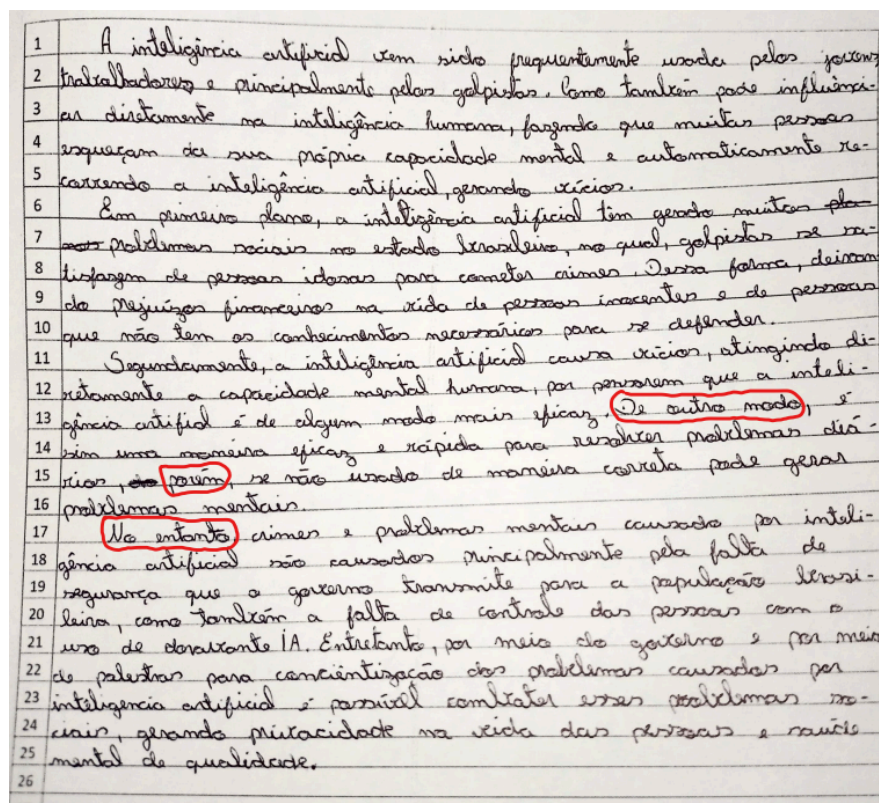 1 A inteligência artificial vem sido frequentemente usada pelos jovens
2 trabalhadores e principalmente pelos golpistas. Como também pode influênci-
3 ar diretamente na inteligência humana, fazendo que muitas pessoas
4 esqueçam da sua própria capacidade mental e automaticamente re-
5 correndo a inteligência artificial, gerando vícios.
6 Em primeiro plano, a inteligência artificial têm gerado muitos
7 problemas sociais no estado brasileiro, no qual, golpistas se sa-
8 tisfazem de pessoas idosas para cometer crimes. Dessa forma, deixan
9 do prejuízos financeiros na vida de pessoas inocentes e de pessoas
10 que não tem os conhecimentos necessários para se defender.
11 Segundamente, a inteligência artificial causa vícios, atingindo di-
12 retamente a capacidade mental humana, por pensarem que a inteli-
13 gência artifial é de algum modo mais eficaz. De outro modo, é
14 sim uma maneira eficaz e rápida para resolver problemas diá-
15 rios, porém, se não usado de maneira correta pode gerar
16 problemas mentais.
17 No entanto, crimes e problemas mentais causado por inteli-
18 gência artificial são causados principalmente pela falta de
19 segurança que o governo transmite para a população brasi-
20 leira, como também a falta de controle das pessoas com o
21 uso de IA. Entretanto, por meio do governo e por meio
22 de palestras para conciêntização dos problemas causados por
23 inteligencia artificial é possível combater esses problemas so-
24 ciais, gerando privacidade na vida das pessoas e saúde
25 mental de qualidade.
26